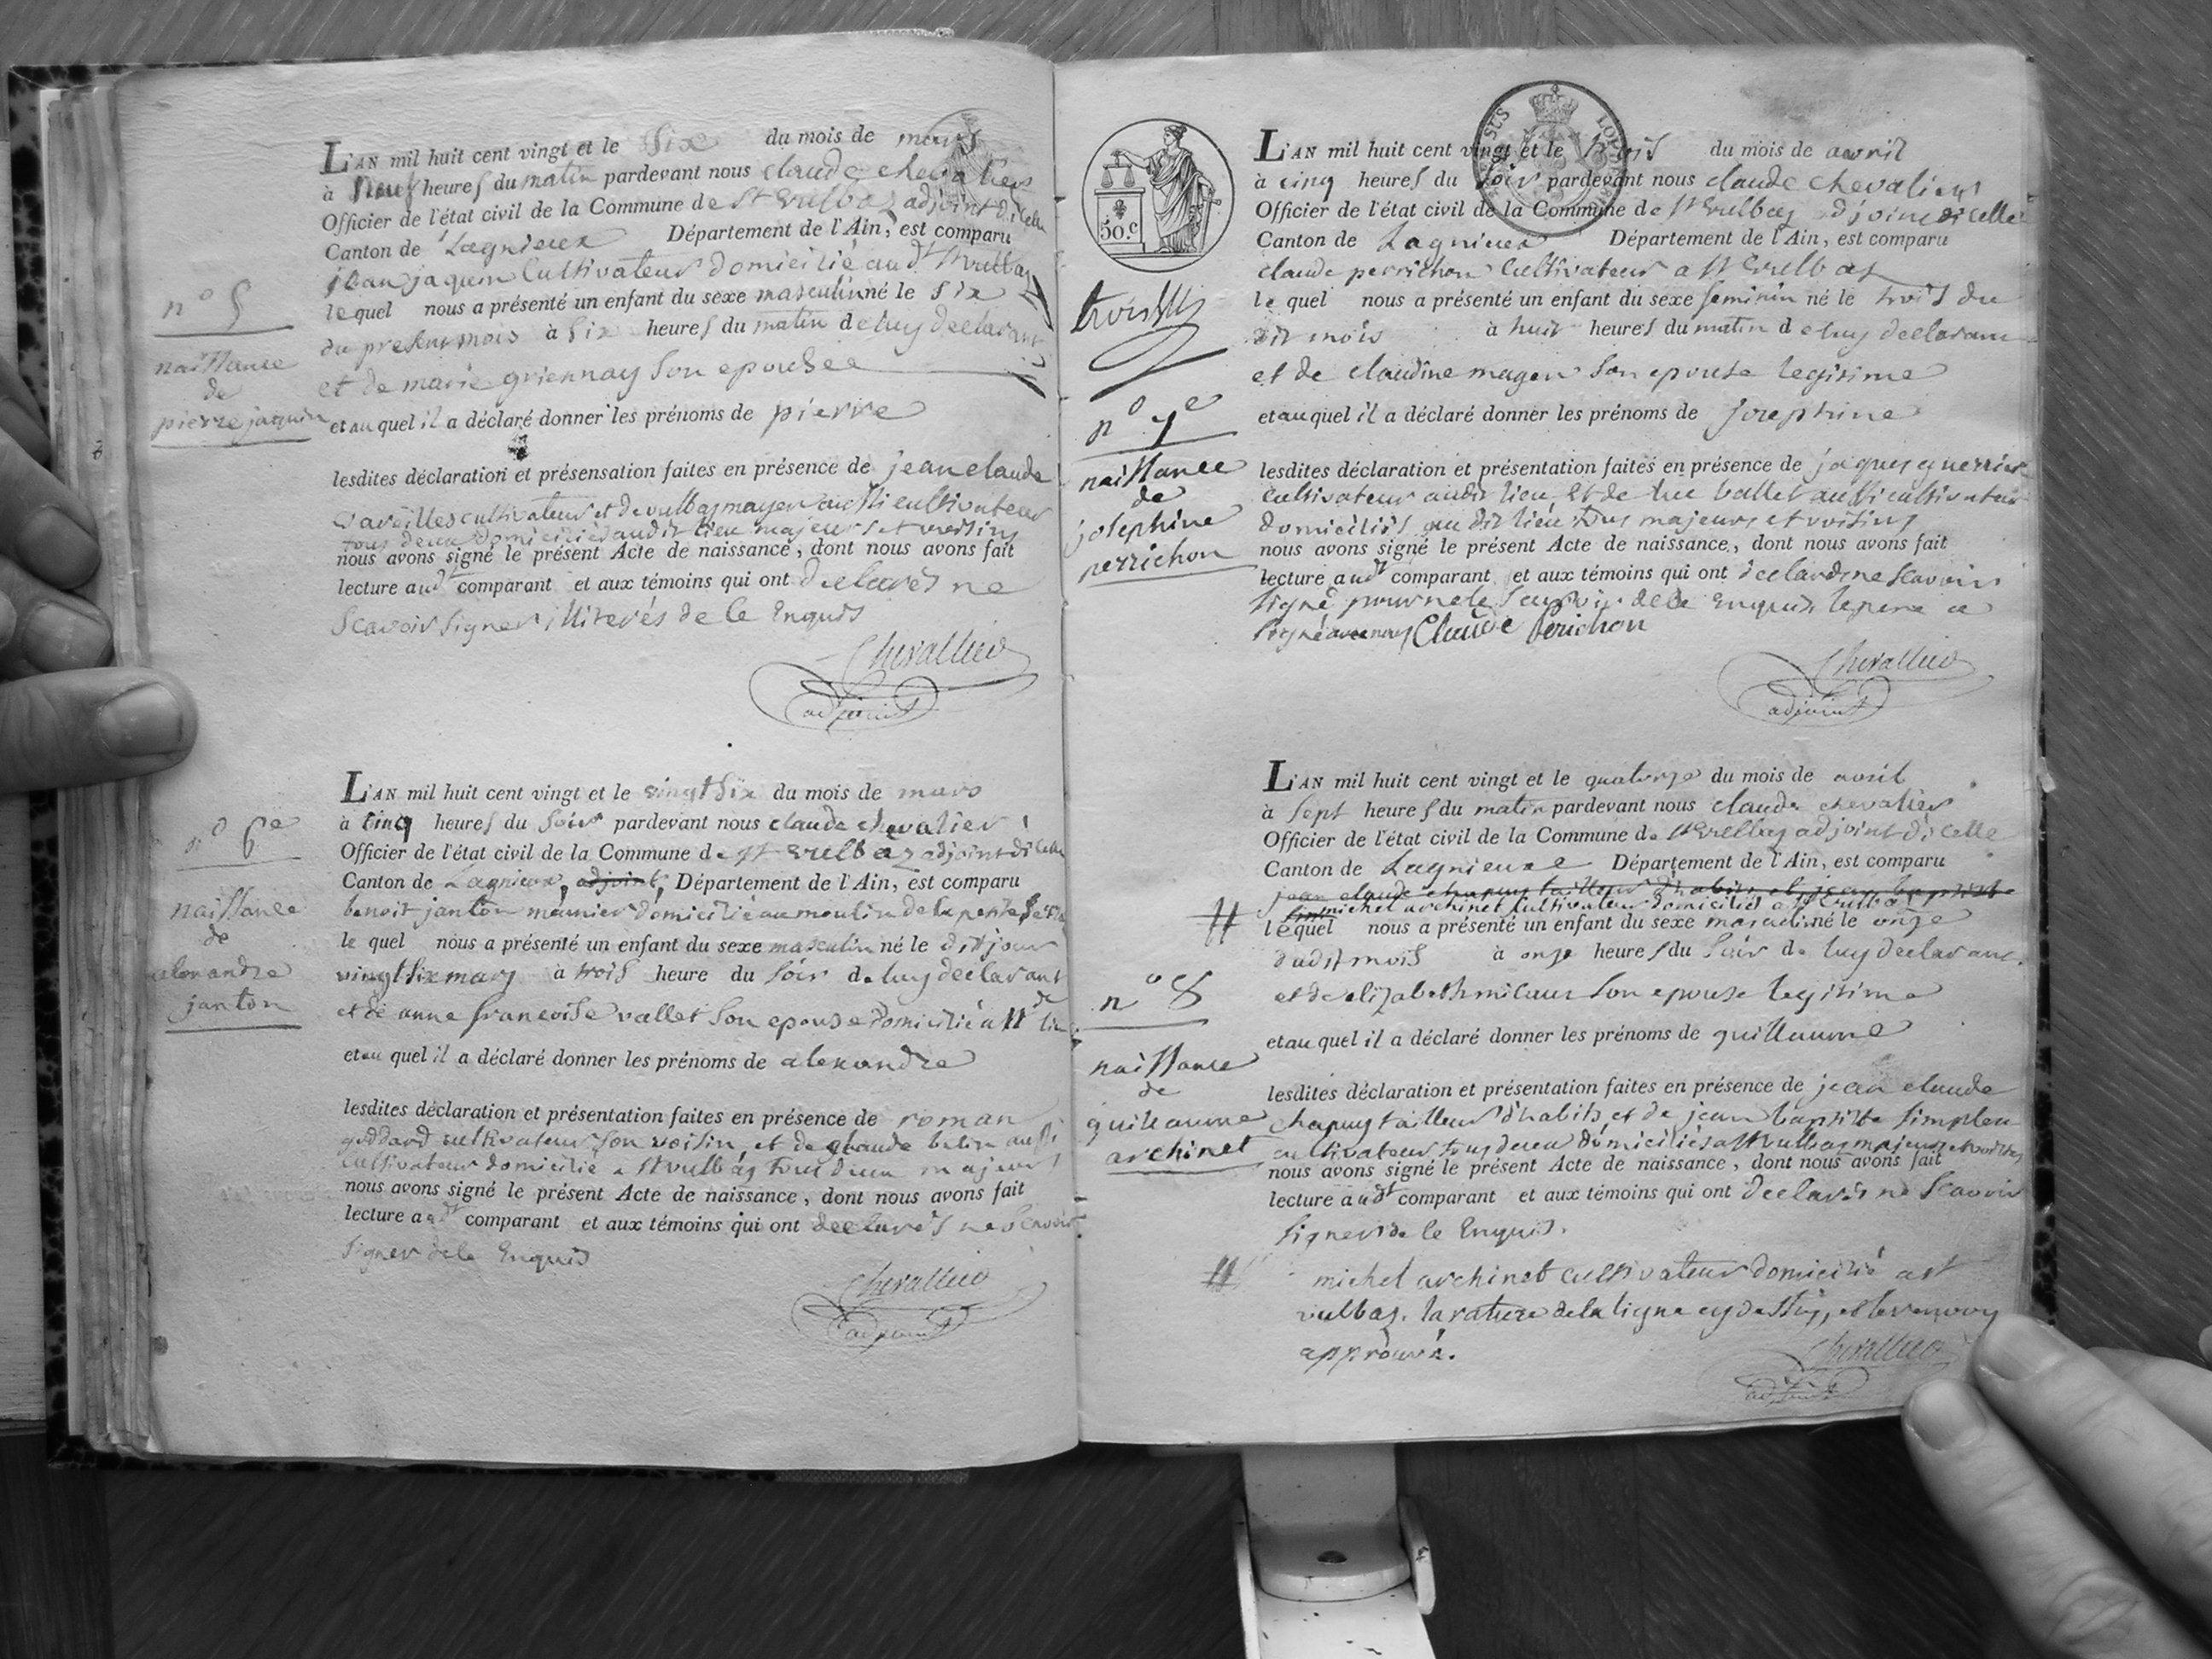 n° 5
naissance
de
pierre jaquin
L'AN mil huit cent vingt et le six du mois de mars
à neuf heures du matin pardevant nous claude chevalier
Officier de l'état civil de la Commune de St Vulbas adjoint di celle
Canton de Lagnieux Département de l'Ain, est comparu
jean jaquin Cultivateur domicilié au dt St vulbas
lequel nous a présenté un enfant du sexe masculin né le six
du present mois à six heures du matin de luy declarant
et de marie griennay son epouse
et au quel il a déclaré donner les prénoms de pierre
lesdites déclaration et présensation faites en présence de jean claude
cultivateur et de vulbas mayer aussi cultivateur
tous deux domiciliés audit lieu majeurs et voisins
nous avons signé le présent Acte de naissance, dont nous avons fait
lecture audt comparant et aux témoins qui ont declarés ne
scavoir signer illiterés de ce Enquis
Chevallier
adjoint
n° 6e
naissance
de
alexandre
janton
L'AN mil huit cent vingt et le vingt six du mois de mars
à cinq heures du soir pardevant nous claude chevalier
Officier de l'état civil de la Commune de St Vulbas adjoint di celle
Canton de Lagnieux, adjoint, Département de l'Ain, est comparu
benoit janton meunier domicilié au moulin de la
le quel nous a présenté un enfant du sexe masculin né le dit jour
vingt six mars à trois heure du soir de luy declarant
et de anne francoise vallet son epouse domicilié a
et au quel il a déclaré donner les prénoms de alexandre
lesdites déclaration et présentation faites en présence de roman
goddard cultivateur son voisin, et de claude belin aussi
cultivateur domicilié a St vulbas tous deux majeurs
nous avons signé le présent Acte de naissance, dont nous avons fait
lecture a comparant et aux témoins qui ont declarés ne scavoir
signer de ce Enquis
Chevallier
adjoint
50.c
n° 7e
naissance
de
josephine
perrichon
L'AN mil huit cent vingt et le trois du mois de avril
à cinq heures du soir pardevant nous claude chevalier
Officier de l'état civil de la Commune de St Vulbas adjoint di celle
Canton de Lagnieux Département de l'Ain, est comparu
claude perrichon Cultivateur a St Vulbas
le quel nous a présenté un enfant du sexe feminin né le trois du
dit mois à huit heures du matin de luy declarant
et de claudine magen son epouse legitime
et au quel il a déclaré donner les prénoms de josephine
lesdites déclaration et présentation faites en présence de jaques guerrier
cultivateur audit lieu et de luc vallet aussi cultivateur
domiciliés au dit lieu tous majeurs et voisins
nous avons signé le présent Acte de naissance, dont nous avons fait
lecture audt comparant et aux témoins qui ont declaré ne scavoir
signé de ce Enquis le pere a
signé avec nous Claude Perichon
Chevallier
adjoint
n° 8
naissance
de
guillaume
archinet
L'AN mil huit cent vingt et le quatorze du mois de avril
à sept heures du matin pardevant nous claude chevalier
Officier de l'état civil de la Commune de St Vulbas adjoint di celle
Canton de Lagnieux Département de l'Ain, est comparu
jean claude chapuy tailleur d'habits et jean baptiste
michel archinet cultivateur domicilié a St Vulbas
lequel nous a présenté un enfant du sexe masculin né le onze
dudit mois à onze heures du soir de luy declarant
et de elizabeth son epouse legitime
et au quel il a déclaré donner les prénoms de guillaume
lesdites déclaration et présentation faites en présence de jean claude
chapuy tailleur d'habits et de jean baptiste simplex
cultivateur tous deux domiciliés a St vulbas majeurs et voisins
nous avons signé le présent Acte de naissance, dont nous avons fait
lecture audt comparant et aux témoins qui ont declarés ne scavoir
signer de ce Enquis.
michel archinet cultivateur domicilié a St
vulbas. la rature de la ligne cy dessus, et le renvoy
approuvé.
Chevallier
adjoint